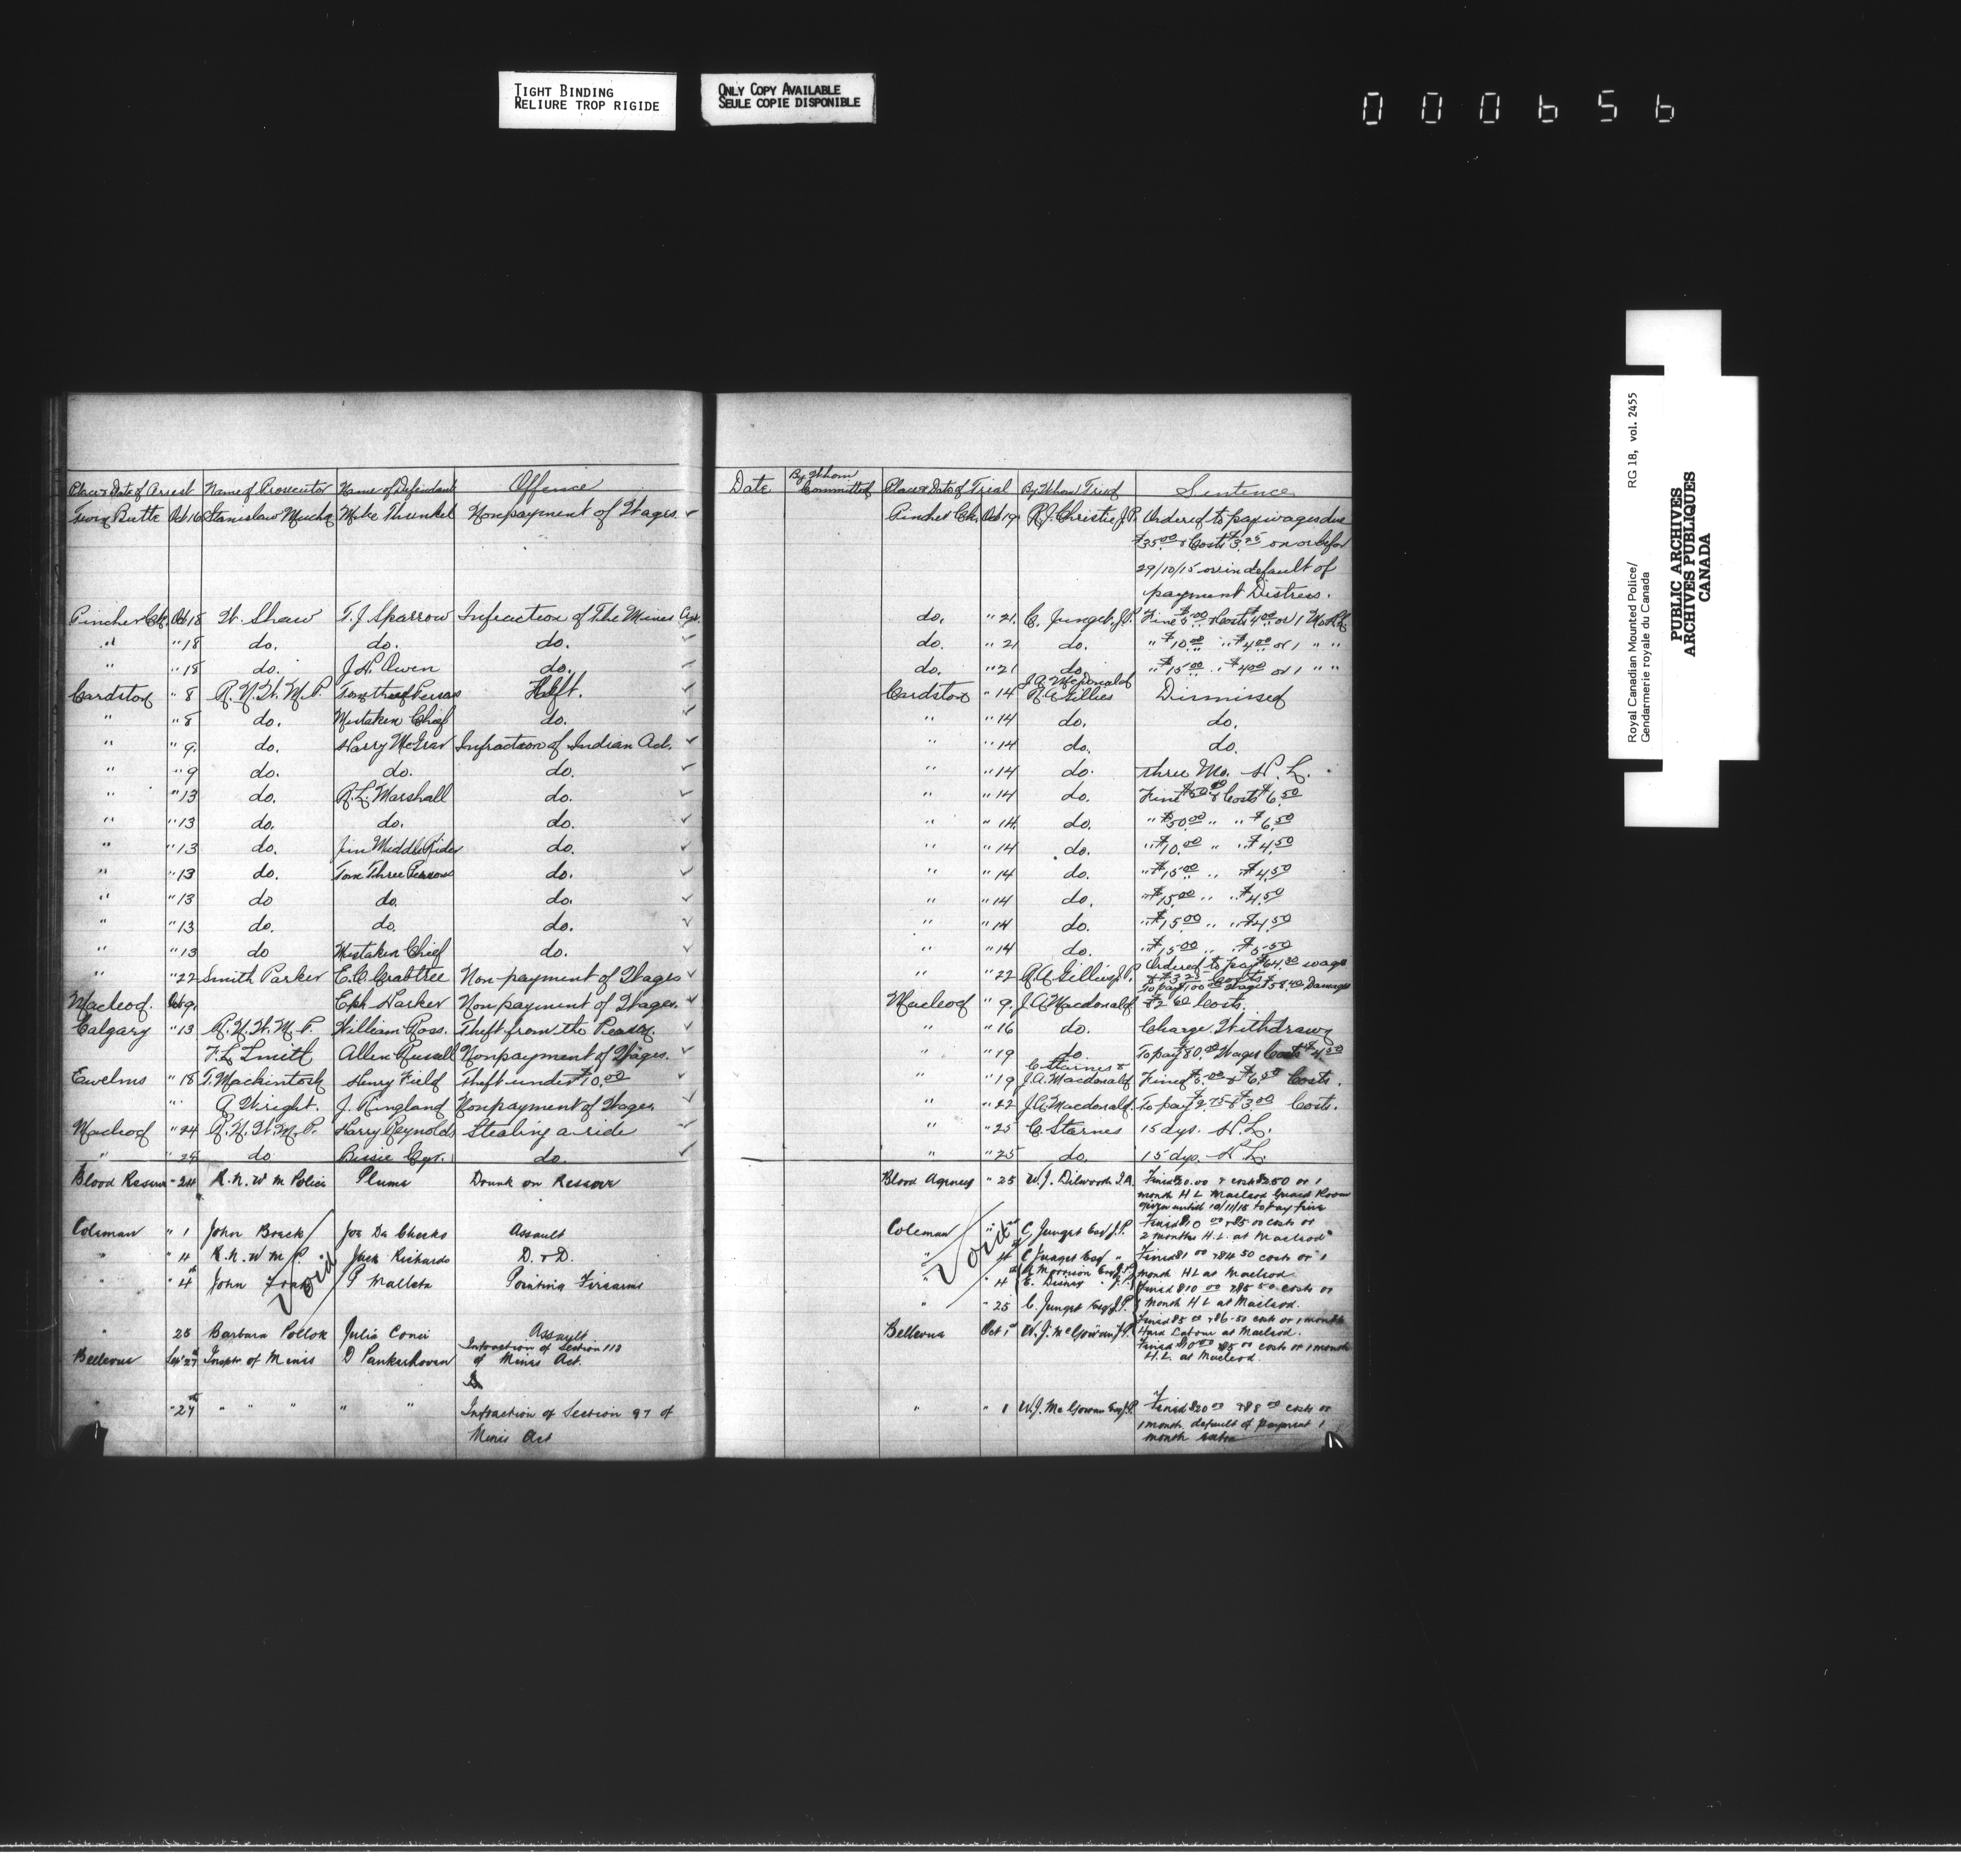 TIGHT BINDING
RELIURE TROP RIGIDE
ONLY COPY AVAILABLE
SEULE COPIE DISPONIBLE
000656
Royal Canadian Mounted Police/ RG 18, vol. 2455
Gendarmerie royale du Canada
PUBLIC ARCHIVES
ARCHIVES PUBLIQUES
CANADA
Place & Date of Arrest Name of Prosecutor Name of Defendant Offence Date By Whom Committed Place & Date of Trial By Whom Tried Sentence
Twin Butte Oct 16 Stanislaw Mucha Mike Thunkel Nonpayment of Wages ✓ Pincher Ck. Oct 19 R.J. Christie J.P. Ordered to pay wages due
$35.00 & Costs $3.25 on or befor
29/10/15 or in default of
payment Distress.
Pincher Ck. Oct 18 W. Shaw T.J. Sparrow Infraction of The Mines Act. do. " 21 C. Junget J.P. Fine $5.00 & Costs $4.00 or 1 Mo.
" " 18 do. do. do. ✓ do. " 21 do. " $10.00 " $4.00 or 1 " "
" " 18 do. J.H. Owen do. ✓ do. " 21 do. " $15.00 " $4.00 or 1 " "
Cardston " 8 R.N.W.M.P. Theft. ✓ Cardston " 14 J.A. McDonald R.A. Gillies Dismissed
" " 8 do. Mistaken Chief do. ✓ " " 14 do. do.
" " 9. do. Harry Infraction of Indian Act. ✓ " " 14 do. do.
" " 9 do. do. do. ✓ " " 14 do. three Mo. H.L.
" " 13 do. R.L. Marshall do. ✓ " " 14 do. Fine $50.00 & Costs $6.50
" " 13 do. do. do. ✓ " " 14 do. " $50.00 " " $6.50
" " 13 do. Jim Middle Rider do. ✓ " " 14 do. " $10.00 " " $4.50
" " 13 do. Tom Three Persons do. ✓ " " 14 do. " $15.00 " " $4.50
" " 13 do do. do. ✓ " " 14 do. " $15.00 " " $4.50
" " 13 do. do. do. ✓ " " 14 do. " $15.00 " " $4.50
" " 13 do Mistaken Chief do. ✓ " " 14 do. " $15.00 " $5.50
" " 22 Smith Parker E.C. Crabtree Non-payment of Wages ✓ " " 22 R.A. Gillies J.P. Ordered to pay $64.30 wages
& $3.25 Costs
Macleod. Oct 9. Eph Harker Non payment of Wages. ✓ Macleod " 9. J.A. Macdonald To pay Wages $58.40 Damages
$2.60 Costs.
Calgary " 13 R.N.W.M.P. William Ross. Theft from the Person. ✓ " " 16 do. Charge Withdrawn
F.L. Smith Allen Russell Nonpayment of Wages. ✓ " " 19 do. To pay $80.00 Wages Costs
Ewelme " 18 T. Mackintosh Henry Field Theft under $10.00 ✓ " " 19 C. Starnes & J.A. Macdonald Fined $5.00 & $6.50 Costs.
" A. Wright. J. Ringland Nonpayment of Wages. ✓ " " 22 J.A. Macdonald. To pay $2.75 & $3.00 Costs.
Macleod " 24 R.N.W.M.P. Harry Reynolds Stealing a ride ✓ " " 25 C. Starnes 15 dys. H.L.
" " 25 do Bessie Cyr. do. ✓ " " 25 do. 15 dys. H.L.
Blood Reserve " 24 R.N.W M Police Plume Drunk on Reserve Blood Agency " 25 W.J. Dilworth I.A. Fined $20.00 & costs $2.50 or 1
month H L Macleod Guard Room
given until 10/11/15 to pay fine
Coleman " 1 John Broek Joe Da Checks Assault Coleman " C. Junget Esq J.P. Fined $10 00 & $5 00 costs or
2 months H.L. at Macleod
" " 4 R.N.W M P. Jack Richards D. & D. " 4 C Junget Esq " Fined $1 00 & $4 50 costs or 1
month HL at Macleod
" " 4th John Frank P Mallata Pointing Firearms " " 4 A Morrison Esq J.P. E. Disney " J.P. Fined $10 00 & $5 50 costs or
1 month H L at Macleod.
Void
Void
" 25 C. Junget Esq J.P. Fined $5 00 & $6.50 costs or 1 month
Hard Labour at Macleod.
" 25 Barbara Pollok Julia Conei Assault Bellevue Oct 1st W.J. McGowan J.P. Fined $10 00 & $5 00 costs or 1 month
H.L. at Macleod.
Bellevue Sept 27th Insptr of Mines D Pankuhoven Infraction of Section 110
of Mines Act.
" " 27th " " " " " Infraction of Section 97 of
Mines Act
" " 1 W.J. McGowan Esq J.P. Fined $20 00 & $8 00 costs or
1 month default of payment 1
month extra